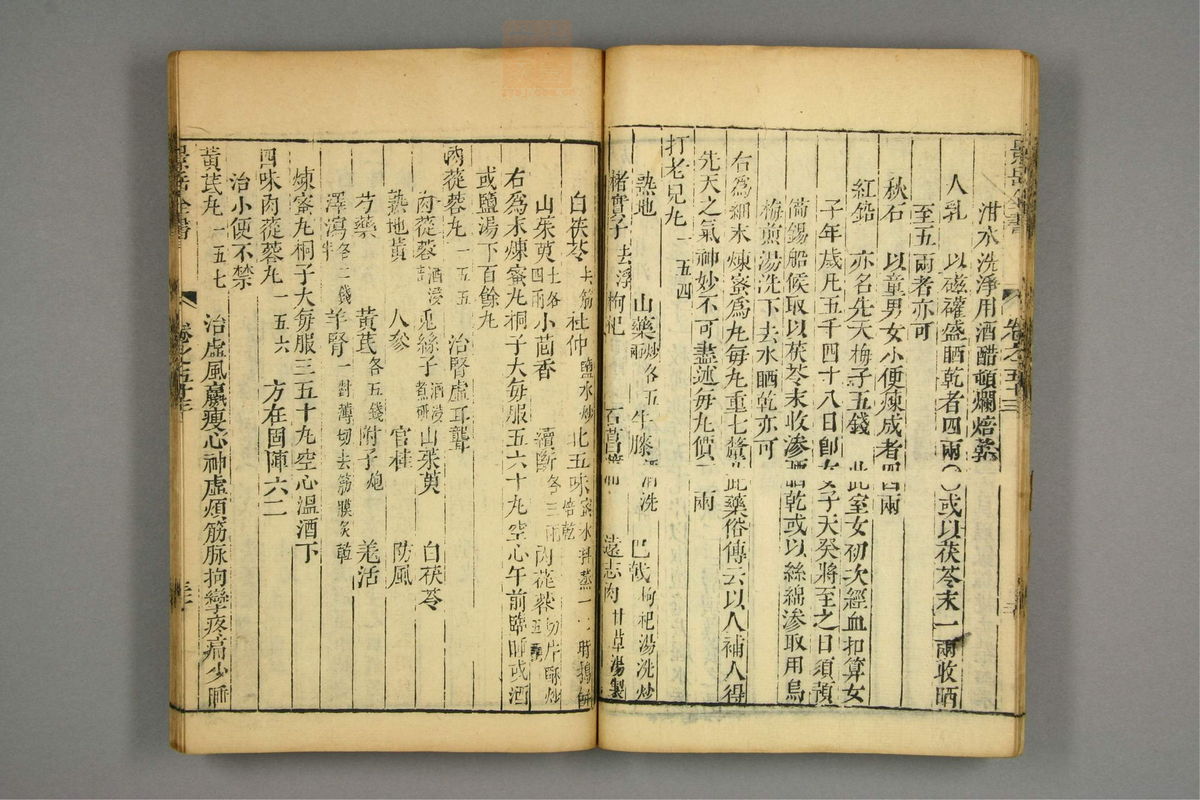 泔水洗淨用酒醋頓爛焙乾
人乳 以磁礶盛晒乾者四兩〇或以茯苓末一兩收晒
至五兩者亦可
秋石 以童男女小便煉成者四兩
紅鉛 亦名先天梅子五錢 此室女初次經血扣算女
子年歲凡五千四十八日卽女子天癸將至之日須預
備錫船候取以茯苓末收渗晒乾或以絲綿渗取用烏
梅煎湯洗下去水晒乾亦可
右爲細末煉蜜爲丸每丸重七 此藥俗傳云以人補人得
先天之氣神妙不可盡述每丸價 兩
打老兒丸 一五四
熟地 山藥炒各五兩 牛膝酒洗 巴戟枸祀湯洗炒
楮實子去浮 枸祀 石菖蒲 遠志肉甘草湯製
白茯苓 去筋 杜仲鹽水炒 北五味蜜水拌蒸 焙乾
山茱萸 已上各四兩 小茴香 續斷各三兩 肉蓯蓉切片酥炒五
右爲末煉蜜丸桐子大每服五六十丸空心午前臨卧或酒
或鹽湯下百餘丸
肉蓯蓉丸 一五五 治腎虛耳聾
肉蓯蓉酒浸 菟絲子酒浸煮研 山茱萸 白茯苓
熟地黄 人參 官桂 防風
芍藥 黄芪各五錢 附子炮 羌活
澤瀉各二錢半 羊腎一對薄切去筋膜炙乾
煉蜜丸桐子大每服三五十丸空心溫酒下
四味肉蓯蓉丸 一五六 方在固陣六二
治小便不禁
黄芪丸 一五七 治虛風羸瘦心神虛煩筋脉拘攣疼痛少睡
景岳全書
卷之五十三